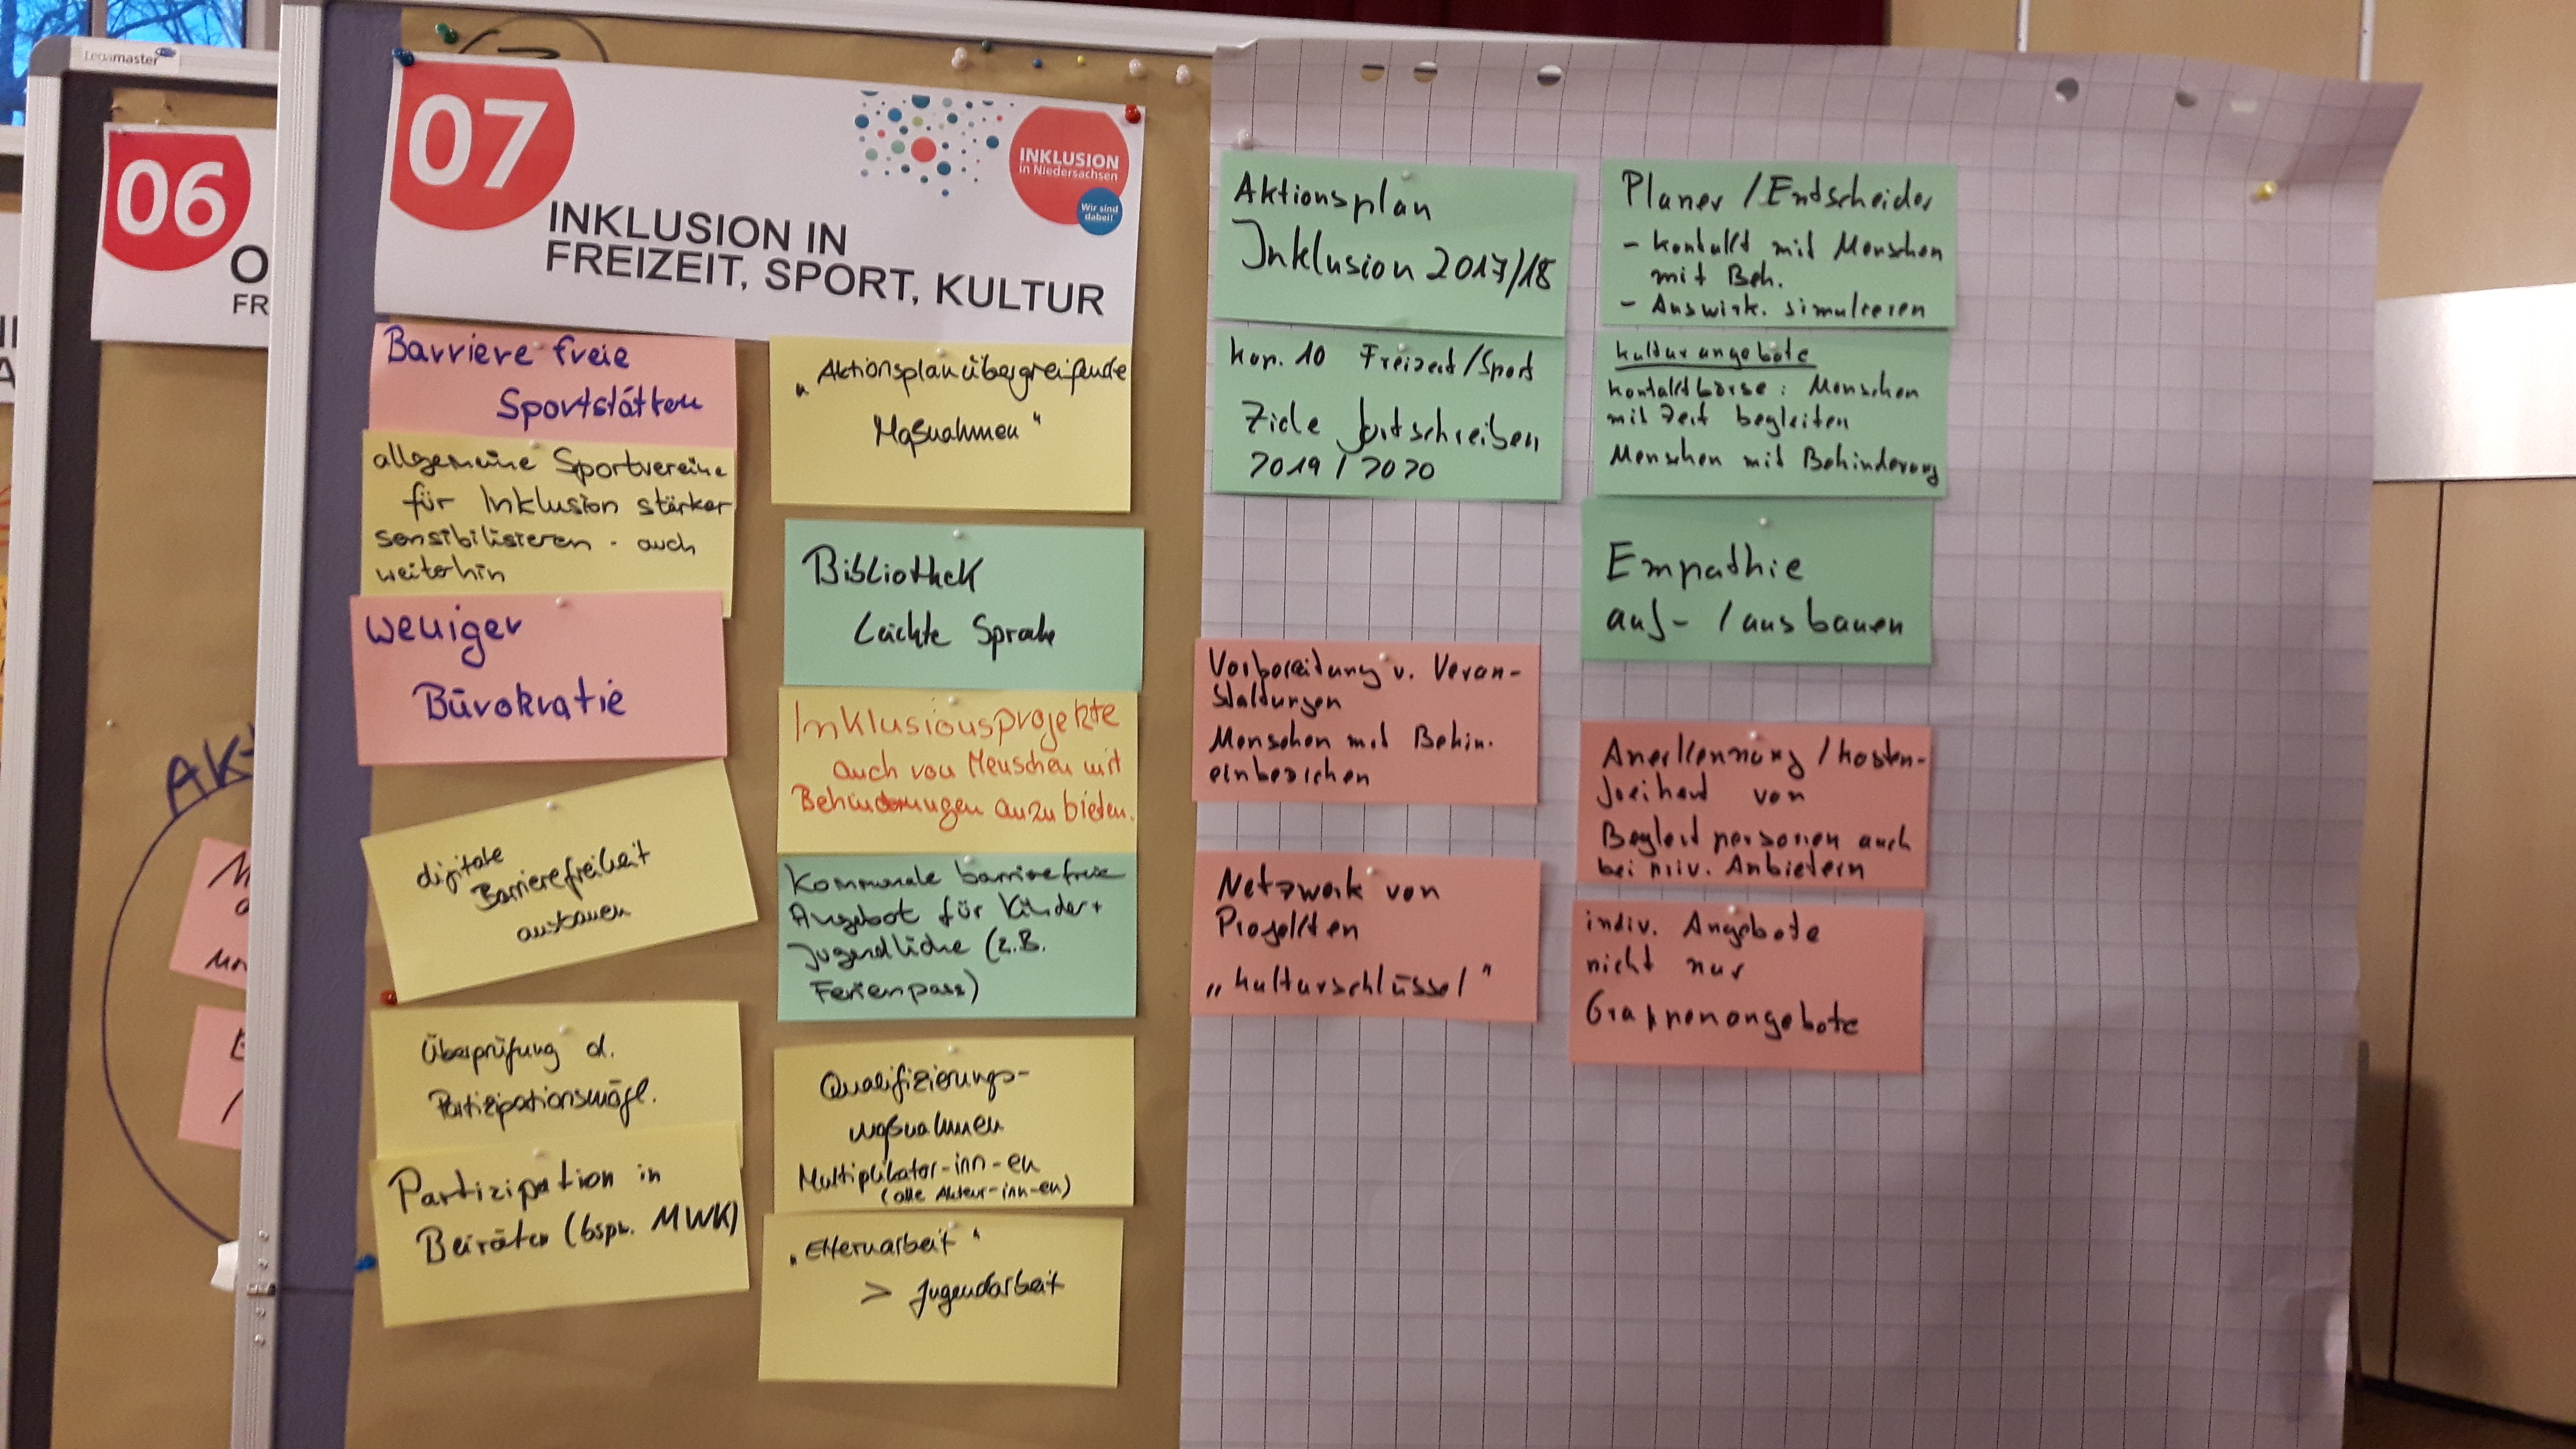 Legamaster
06
O
FR
AK
07
INKLUSION
in Niedersachsen
Wir sind
dabei!
INKLUSION IN
FREIZEIT, SPORT, KULTUR
Barriere freie
Sportstätten
allgemeine Sportvereine
für Inklusion stärker
sensibilisieren - auch
weiterhin
weniger
Bürokratie
digitale
Barrierefreiheit
ausbauen
Überprüfung d.
Partizipationsmögl.
Partizipation in
Beiräten (bspw. MWK)
„Aktionsplanübergreifende
Maßnahmen"
Bibliothek
Leichte Sprache
Inklusionsprojekte
auch von Menschen mit
Behinderungen anzubieten.
Kommunale barrierefreie
Angebot für Kinder+
Jugendliche (z.B.
Ferienpass)
Qualifizierungs-
maßnahmen
Multiplikator-inn-en
(alle Akteur-inn-en)
„Elternarbeit"
> Jugendarbeit
Aktionsplan
Inklusion 2017/18
Kap. 10 Freizeit/Sport
Ziele fortschreiben
2019 / 2020
Vorbereitung v. Veran-
staltungen
Menschen mit Behin.
einbeziehen
Netzwerk von
Projekten
„Kulturschlüssel"
Planer / Entscheider
- Kontakt mit Menschen
mit Beh.
- Auswirk. simulieren
Kulturangebote
Kontaktbörse: Menschen
mit Zeit begleiten
Menschen mit Behinderung
Empathie
auf- / ausbauen
Anerkennung / Kosten-
freiheit von
Begleitpersonen auch
bei priv. Anbietern
indiv. Angebote
nicht nur
Gruppenangebote